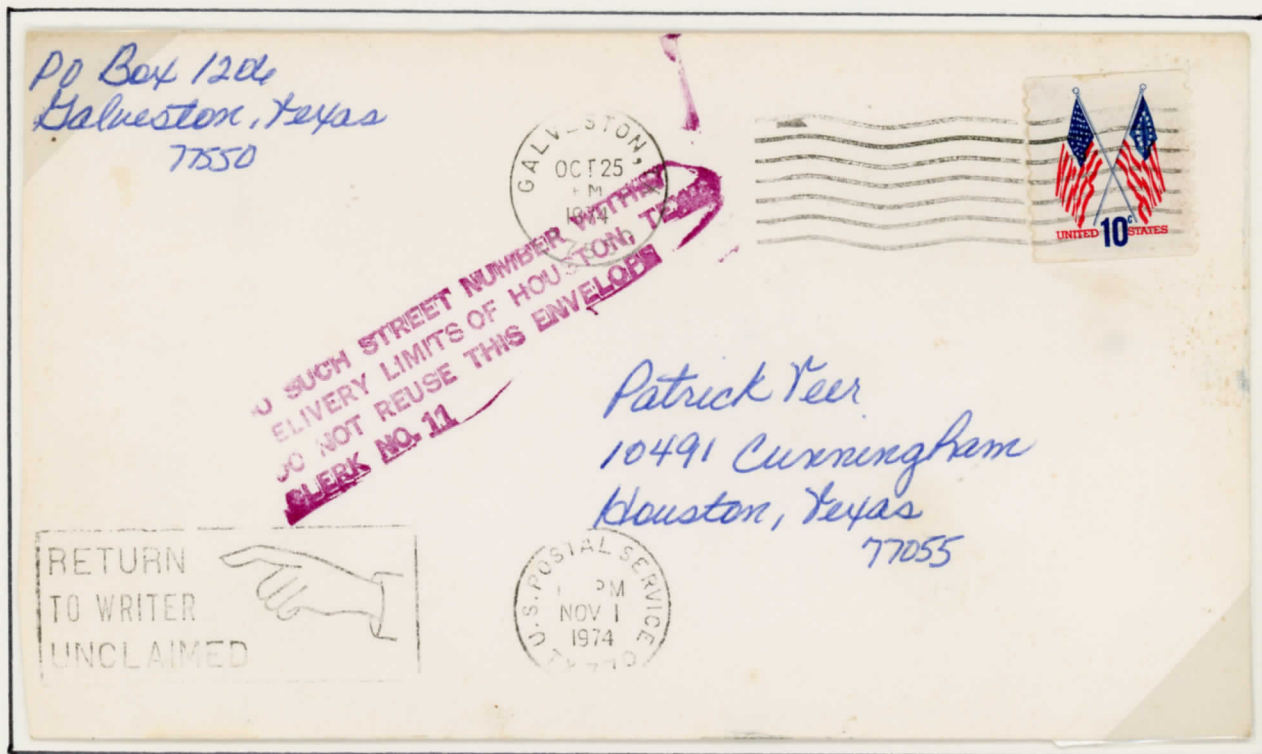 PO Box 1206
Galveston, Texas
77550
GALVESTON,
OCT 25
PM
1974
UNITED 10c STATES
O SUCH STREET NUMBER WITHIN
ELIVERY LIMITS OF HOUSTON, TEXAS
DO NOT REUSE THIS ENVELOPE
CLERK NO. 11
Patrick Veer
10491 Cunningham
Houston, Texas
77055
RETURN
TO WRITER
UNCLAIMED
U.S. POSTAL SERVICE
PM
NOV 1
1974